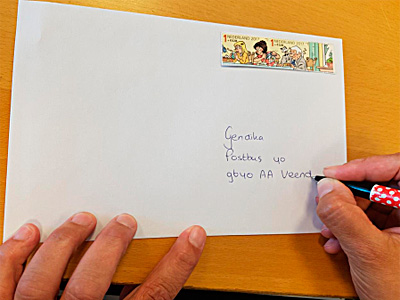 NEDERLAND 2017
NEDERLAND 2017
Gendika
Postbus 40
9640 AA Veend